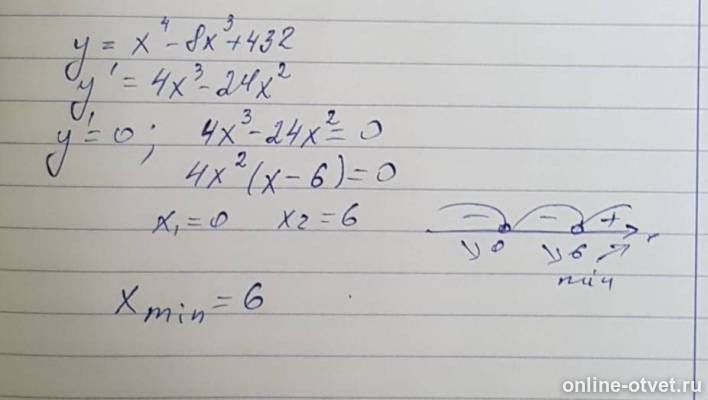 y = x⁴ - 8x³ + 432
y' = 4x³ - 24x²
y' = 0; 4x³ - 24x² = 0
4x²(x - 6) = 0
x₁ = 0 x₂ = 6
- - +
↘ 0 ↘ 6 ↗ x
min
x min = 6
online-otvet.ru